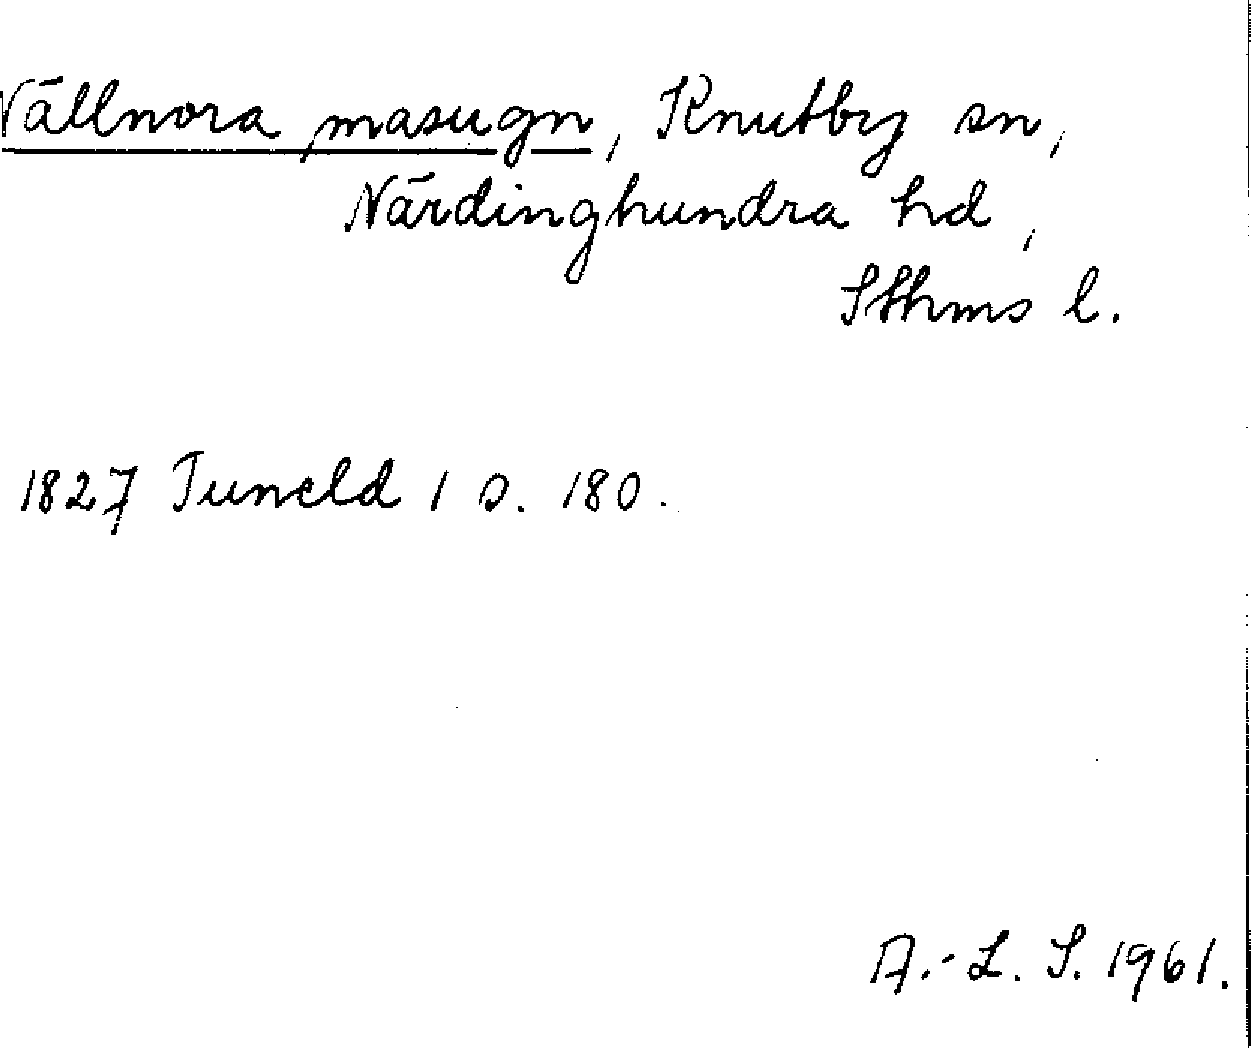 Vällnora masugn, Knutby sn,
Närdinghundra hd,
Sthms l.
1827 Tuneld 1 s. 180.
A.-L. S. 1961.